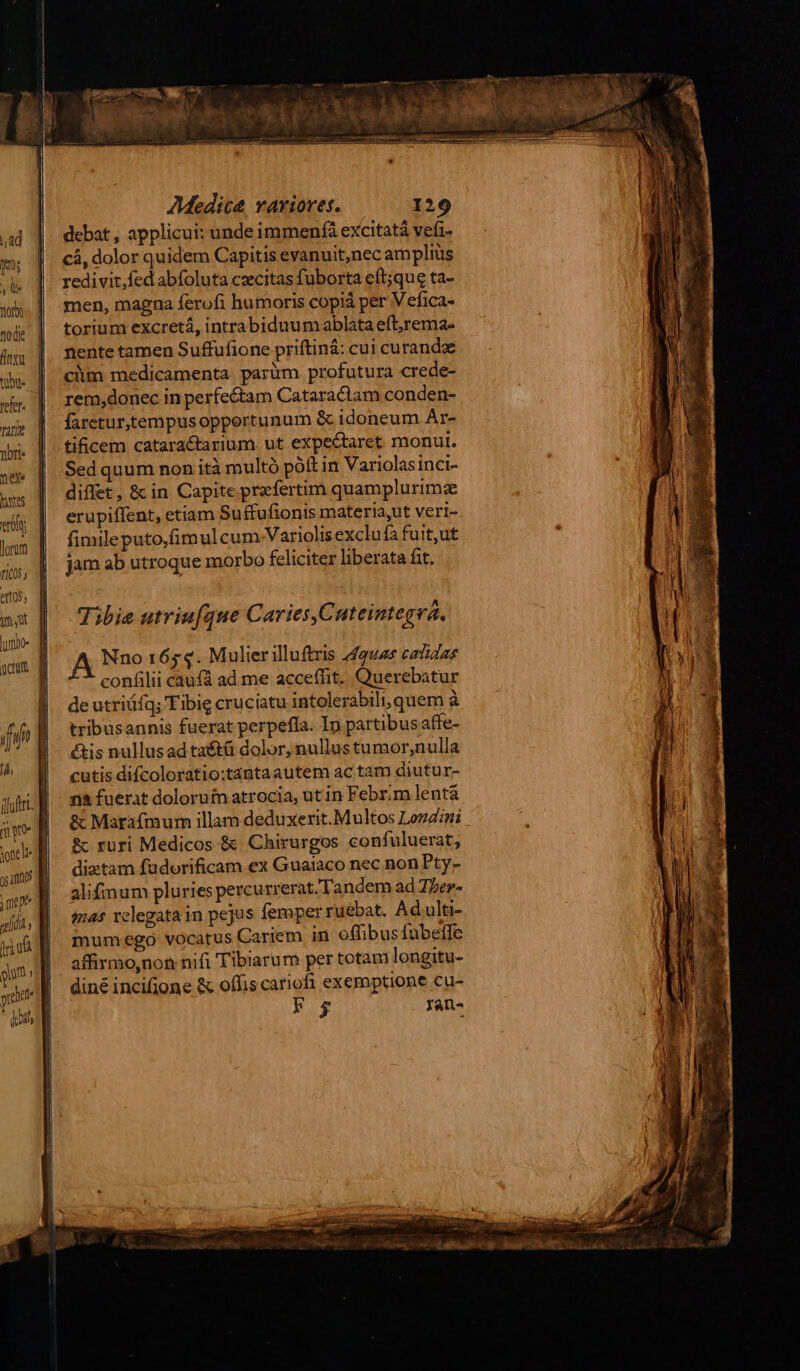 Medicæ rariores. 129
debat, applicui: unde immenſâ excitatâ veſi-
câ, dolor quidem Capitis evanuit, nec ampliùs
redivit, ſed abſoluta cæcitas ſuborta eſt; quę ta-
men, magna ſeroſi humoris copiâ per Veſica-
torium excretâ, intra biduum ablata eſt, rema-
nente tamen Suffuſione priſtinâ: cui curandæ
cùm medicamenta parùm profutura crede-
rem, donec in perfectam Cataractam conden-
ſaretur, tempus opportunum & idoneum Ar-
tificem cataractarium ut expectaret monui.
Sed quum non ità multò pòſt in Variolas inci-
diſſet, & in Capite præſertim quamplurimæ
erupiſſent, etiam Suffuſionis materia, ut veri-
ſimile puto, ſimul cum Variolis excluſa fuit, ut
jam ab utroque morbo feliciter liberata ſit.
Tibiæ utriuſque Caries, Cute integrâ.
ANno 1655. Mulier illuſtris Aquas calidas
conſilii cauſâ ad me acceſſit. Querebatur
de utriúſq; Tibię cruciatu intolerabili, quem à
tribus annis fuerat perpeſſa. In partibus affe-
ctis nullus ad tactũ dolor, nullus tumor, nulla
cutis diſcoloratio: tanta autem ac tam diutur-
na fuerat dolorum atrocia, ut in Febrim lentã
& Maraſmum illam deduxerit. Multos Londini
& ruri Medicos & Chirurgos conſuluerat;
diætam ſudorificam ex Guaiaco nec non Pty-
aliſmum pluries percurrerat. Tandem ad Ther-
mas relegata in pejus ſemper ruebat. Ad ulti-
mum ego vocatus Cariem in oſſibus ſubeſſe
affirmo, non niſi Tibiarum per totam longitu-
dinẽ inciſione & oſſis carioſi exemptione cu-
F 5 ran-